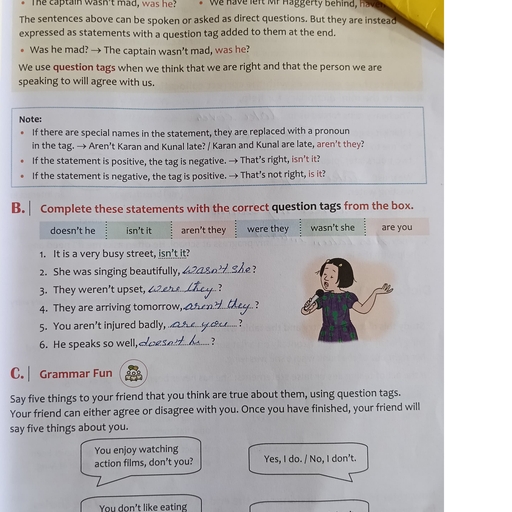 • The captain wasn't mad, was he? • We have left Mr Haggerty behind, haven
The sentences above can be spoken or asked as direct questions. But they are instead
expressed as statements with a question tag added to them at the end.
• Was he mad? → The captain wasn't mad, was he?
We use question tags when we think that we are right and that the person we are
speaking to will agree with us.
Note:
• If there are special names in the statement, they are replaced with a pronoun
in the tag. → Aren't Karan and Kunal late? / Karan and Kunal are late, aren't they?
• If the statement is positive, the tag is negative. → That's right, isn't it?
• If the statement is negative, the tag is positive. → That's not right, is it?
B. Complete these statements with the correct question tags from the box.
doesn't he isn't it aren't they were they wasn't she are you
1. It is a very busy street, isn't it?
2. She was singing beautifully, wasn't she?
3. They weren't upset, were they?
4. They are arriving tomorrow, aren't they?
5. You aren't injured badly, are you?
6. He speaks so well, doesn't he?
C. Grammar Fun
Say five things to your friend that you think are true about them, using question tags.
Your friend can either agree or disagree with you. Once you have finished, your friend will
say five things about you.
You enjoy watching
action films, don't you?
Yes, I do. / No, I don't.
You don't like eating